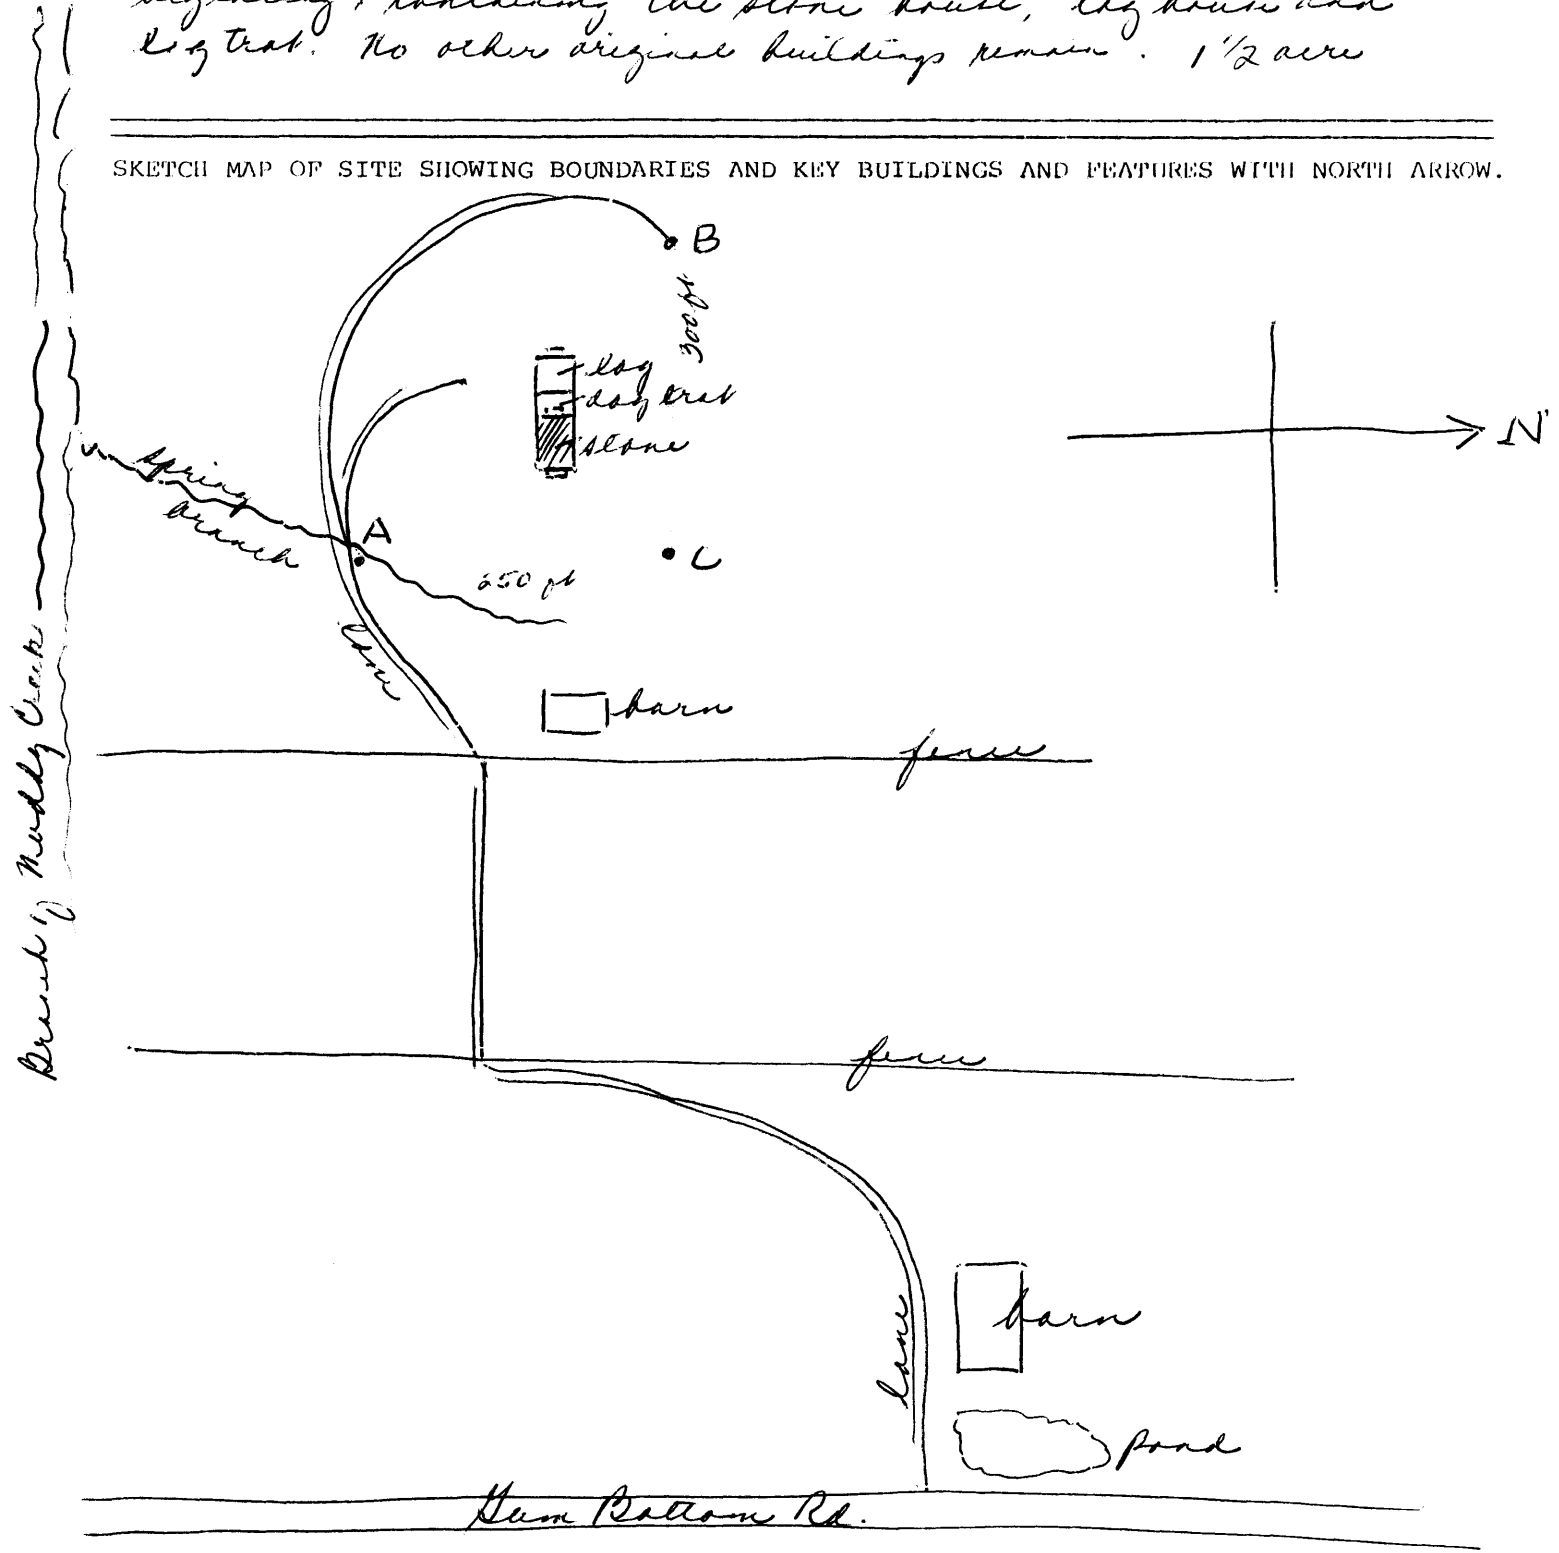 beginning, containing the stone house, log house and
dog trot. No other original buildings remain. 1 1/2 acre
SKETCH MAP OF SITE SHOWING BOUNDARIES AND KEY BUILDINGS AND FEATURES WITH NORTH ARROW.
B
300 ft
log
dog trot
stone
N
spring
branch
A
C
250 ft
lane
barn
fence
Branch of Muddy Creek
fence
lane
barn
pond
Gum Bottom Rd.